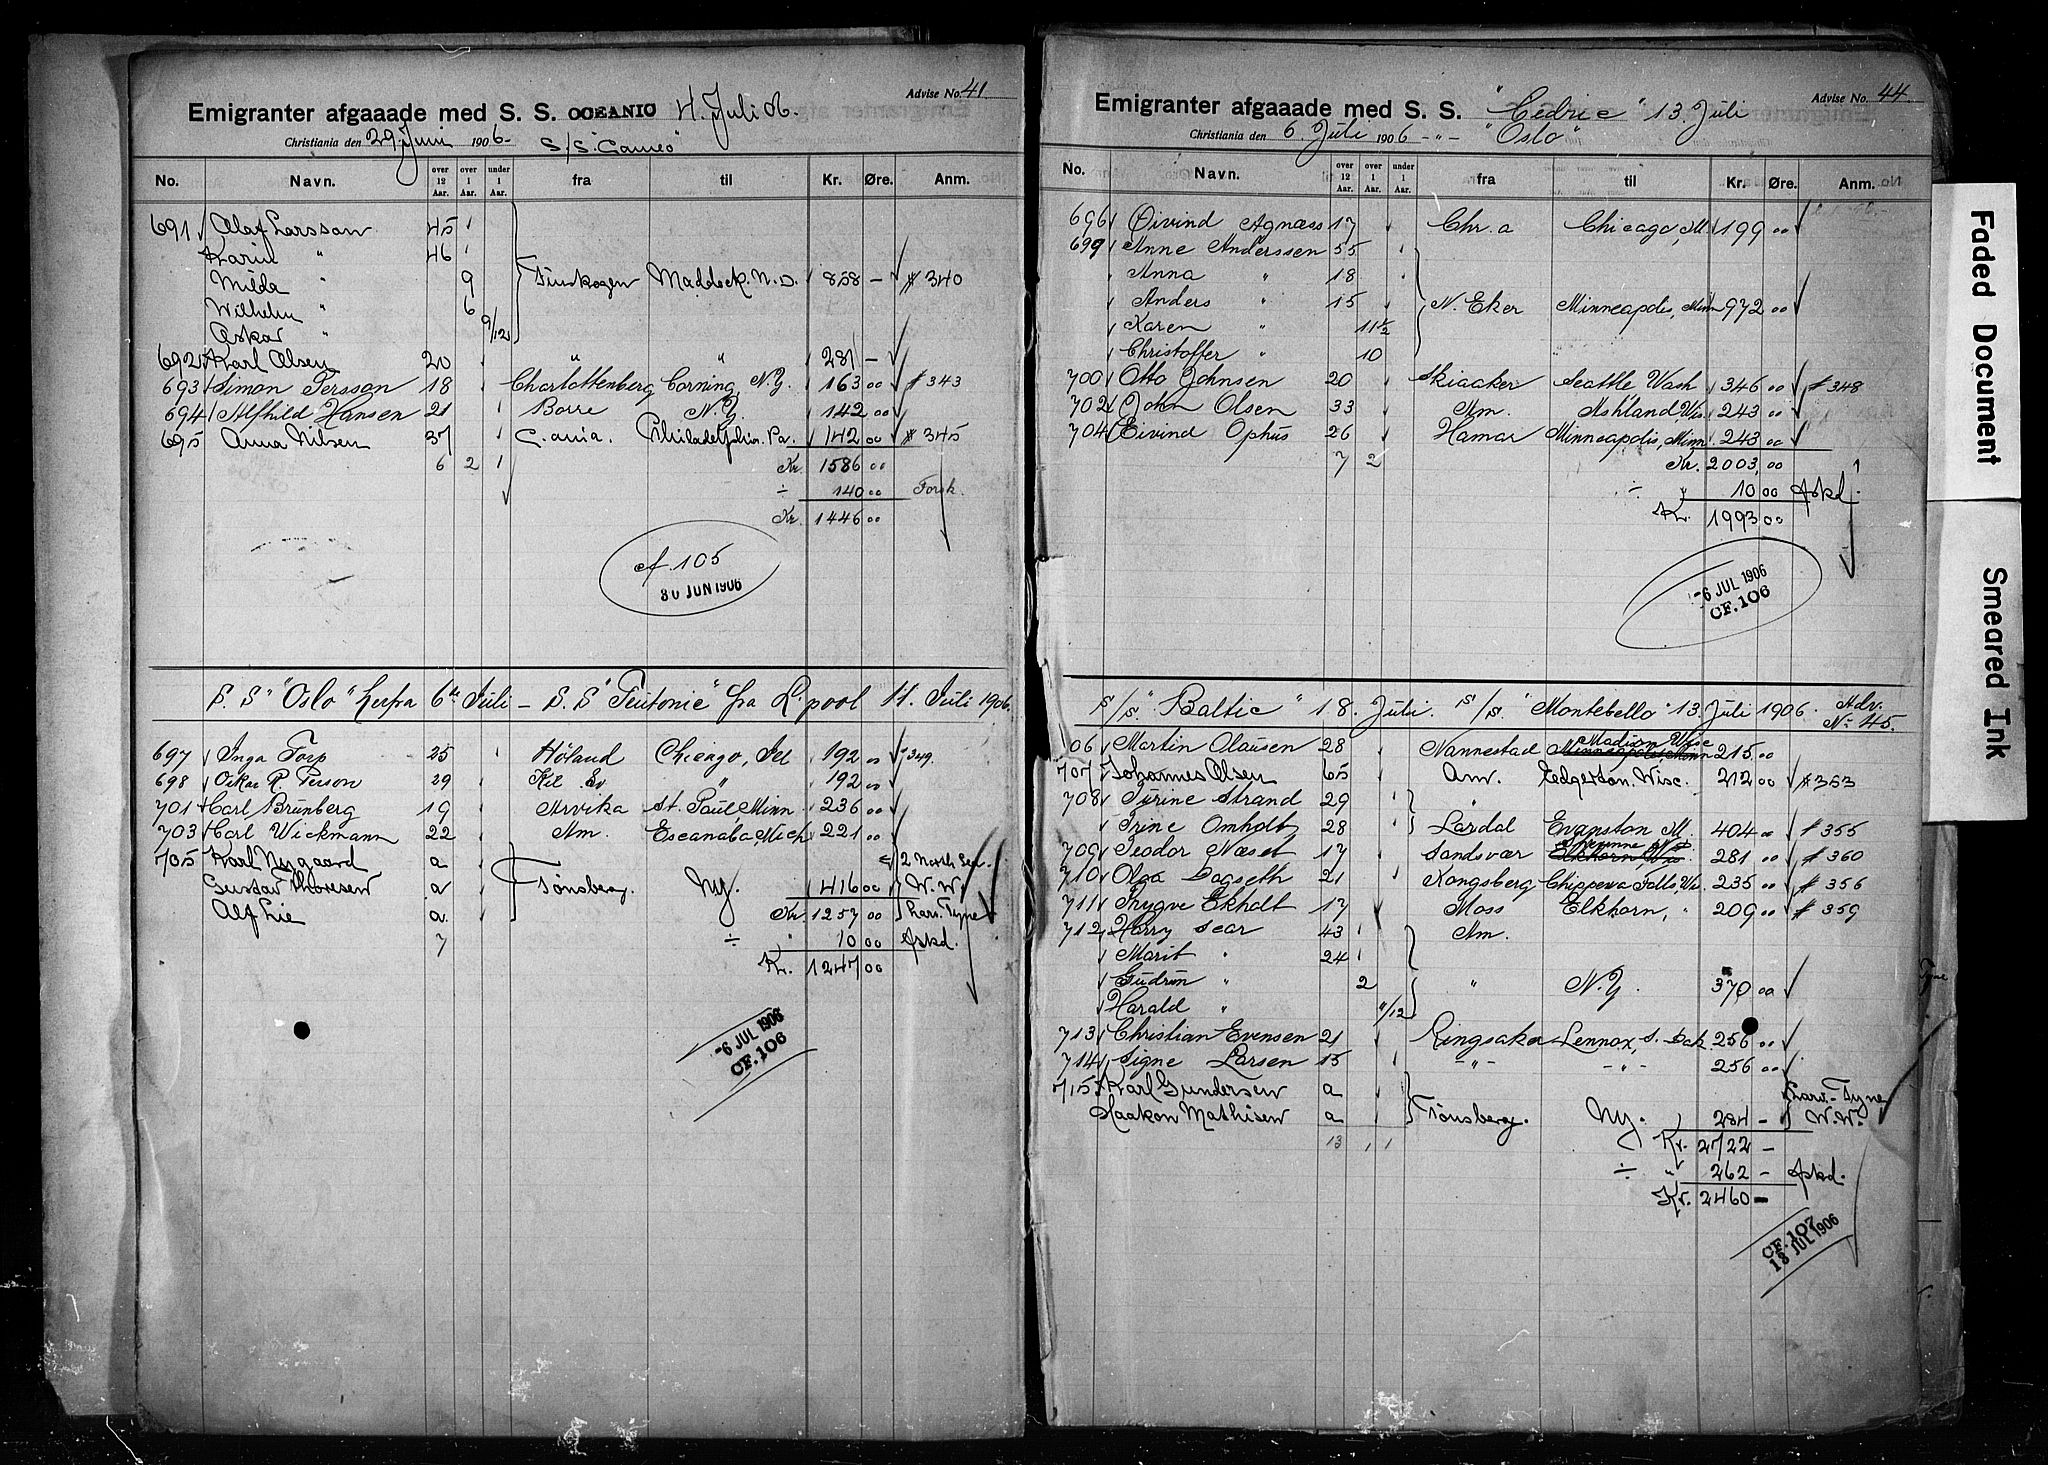 Advise No. 41
Emigranter afgaaade med S. S. OCEANIC 4 Juli 06.
Christiania den 29 Juni 1906 S/S. "Cameo"
No. Navn. over 12 Aar. over 1 Aar. under 1 Aar. fra til Kr. Øre. Anm.
691 Olaf Larsson 45
Karin " 46
Milda " 9 Finskogen Maddock. N. D. 858 - # 340
Wilhelm " 6
Oskar " 9/12
692 Karl Olsen 20 " " 281 -
693 Simon Persson 18 Charlottenberg Corning, N.Y. 163 00 # 343
694 Alfhild Hansen 21 Borre N.Y. 142 00
695 Anna Nilsen 37 C.ania. Philadelphia. Pa. 142 00 # 345
6 2 1 Kr. 1586 00
÷ 140 00 Forsk.
Kr. 1446 00
cf. 105
30 JUN 1906
S. S "Oslo" herfra 6te Juli - S. S "Teutonic" fra L.pool 11. Juli 1906.
697 Inga Torp 25 Høland Chicago, Ill 192 00 # 349.
698 Oskar R. Person 29 Kil Sv " 192 00
701 Carl Brunberg 19 Arvika St. Paul, Minn 236 00
703 Carl Wickmann 22 Am. Escanaba, Mich 221 00
705 Karl Nygaard a 2 North Sea.
Gustav Thoresen a Tønsberg. NY. 416 00 W. W.
Alf Lie a. Kr. 1257 00 Larv. Tyne
7 ÷ " 10 00 Afkd.
Kr. 1247 00
-6 JUL 1906
CF. 106
Advise No. 44
Emigranter afgaaade med S. S. "Cedric" 13. Juli
Christiania den 6. Juli 1906 -"- "Oslo"
No. Navn. over 12 Aar. over 1 Aar. under 1 Aar. fra til Kr. Øre. Anm.
696 Øivind Agnæss 17 Chr. a Chicago, Ill. 199 00
699 Anne Anderssen 55
Anna " 18
Anders " 15 N. Eker Minneapolis, Minn 972 00
Karen " 11 1/2
Christoffer " 10
700 Otto Johnsen 20 Skiaaker Seattle Wash 346 00 # 348
702 John Olsen 33 Am. Ashland, Wis 243 00
704 Eivind Ophus 26 Hamar Minneapolis, Minn 243 00
7 2 Kr. 2003.00
÷ " 10 00 Afkd.
Kr. 1993 00
-6 JUL 1906
CF. 106
S/S. "Baltic" 18. Juli. S/S. "Montebello" 13. Juli 1906. Adv. No 45.
Madison Wisc
06 Martin Olausen 28 Nannestad Minneapolis, Minn 215.00
707 Johannes Olsen 65 Am. Edgerton. Wisc. 212 00 # 353
708 Turine Strand 29 "
Trine Omholt 28 Lardal Evanston Ill. 404 00 # 355
709 Teodor Næset 17 Sandsvær Elkhorn Wis. 281 00 # 360
710 Olga Dagseth 21 Kongsberg Chippewa Falls, Wis. 235 00 # 356
711 Trygve Ekholt 17 Moss Elkhorn, " 209 00 # 359
712 Harry Sear 43 Am.
Marit " 24
Gudrun " 2 " N.Y. 370 00
Harald " 11/12
713 Christian Evensen 21 Ringsaker Lennox, S. Dak 256 00
714 Signe Larsen 15 -"- -"- 256 00
715 Karl Gundersen a Larv. - Tyne
Haakon Mathisen a Tønsberg. NY. 284 - W. W.
13 1 1 Kr. 2722 -
÷ " 262 - Afkd.
Kr. 2460 -
CF. 107
13 JUL 1906
Faded Document
Smeared Ink